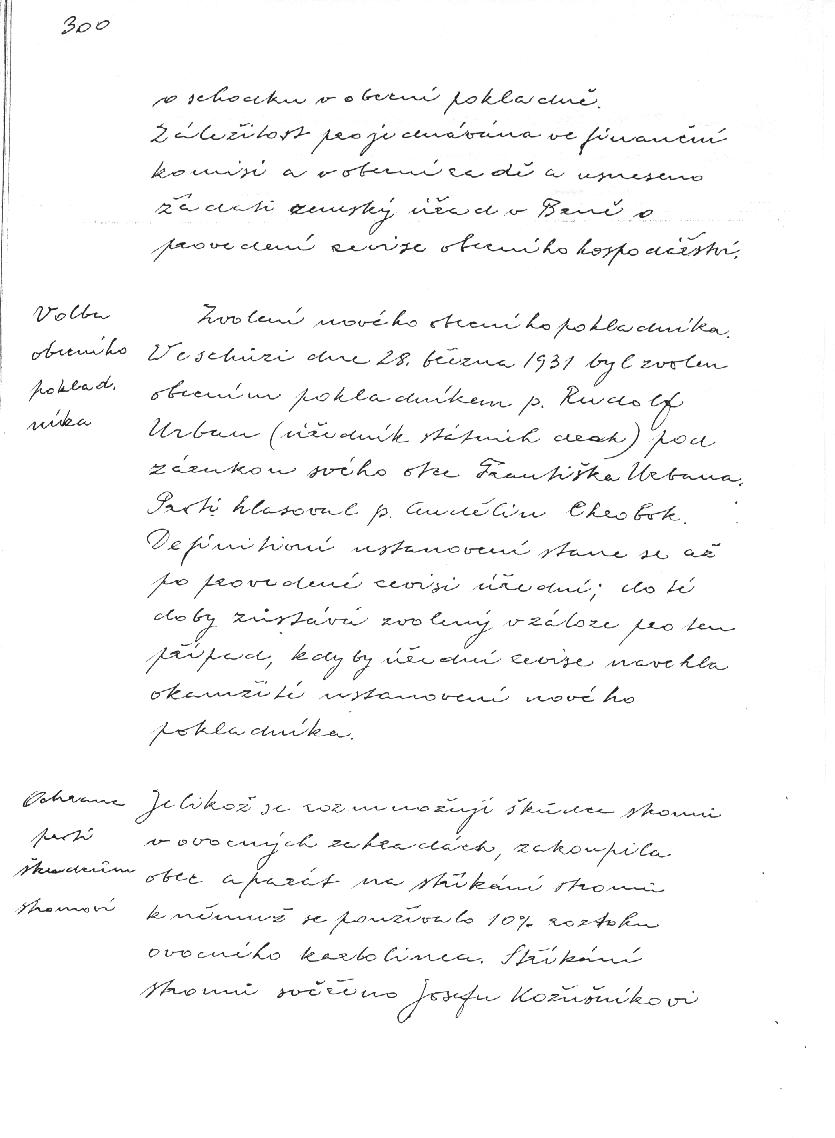 300
o schodku v obecní pokladně.
Záležitost projednávána ve finanční
komisi a v obecní radě a usneseno
žádati zemský úřad v Brně o
provedení revise obecního hospodářství.
Volba
obecního
poklad.
níka
Zvolení nového obecního pokladníka.
Ve schůzi dne 28. března 1931 byl zvolen
obecním pokladníkem p. Rudolf
Urban (úředník státních drah) pod
zárukou svého otce Františka Urbana.
Proti hlasoval p. Andělín Chrobok.
Definitivní ustanovení stane se až
po provedené revisi úřední; do té
doby zůstává zvolený v záloze pro ten
případ, kdyby úřední revise navrhla
okamžité ustanovení nového
pokladníka.
Ochrana
proti
škůdcům
stromoví
Jelikož se rozmnožují škůdce stromů
v ovocných zahradách, zakoupila
obec aparát na stříkání stromů
k němuž se používalo 10% roztoku
ovocního karbolinea. Stříkání
stromů svěřeno Josefu Kožušníkovi